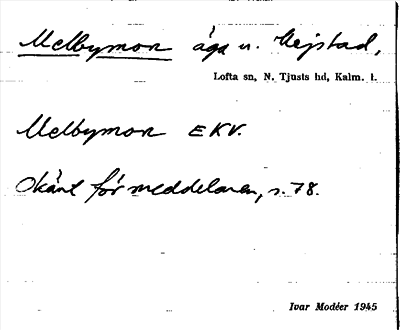 Melbymon äga u. Mejstad,
Lofta sn, N. Tjusts hd, Kalm. l.
Melbymon EKV.
Okänt för meddelaren, s. 78.
Ivar Modéer 1945